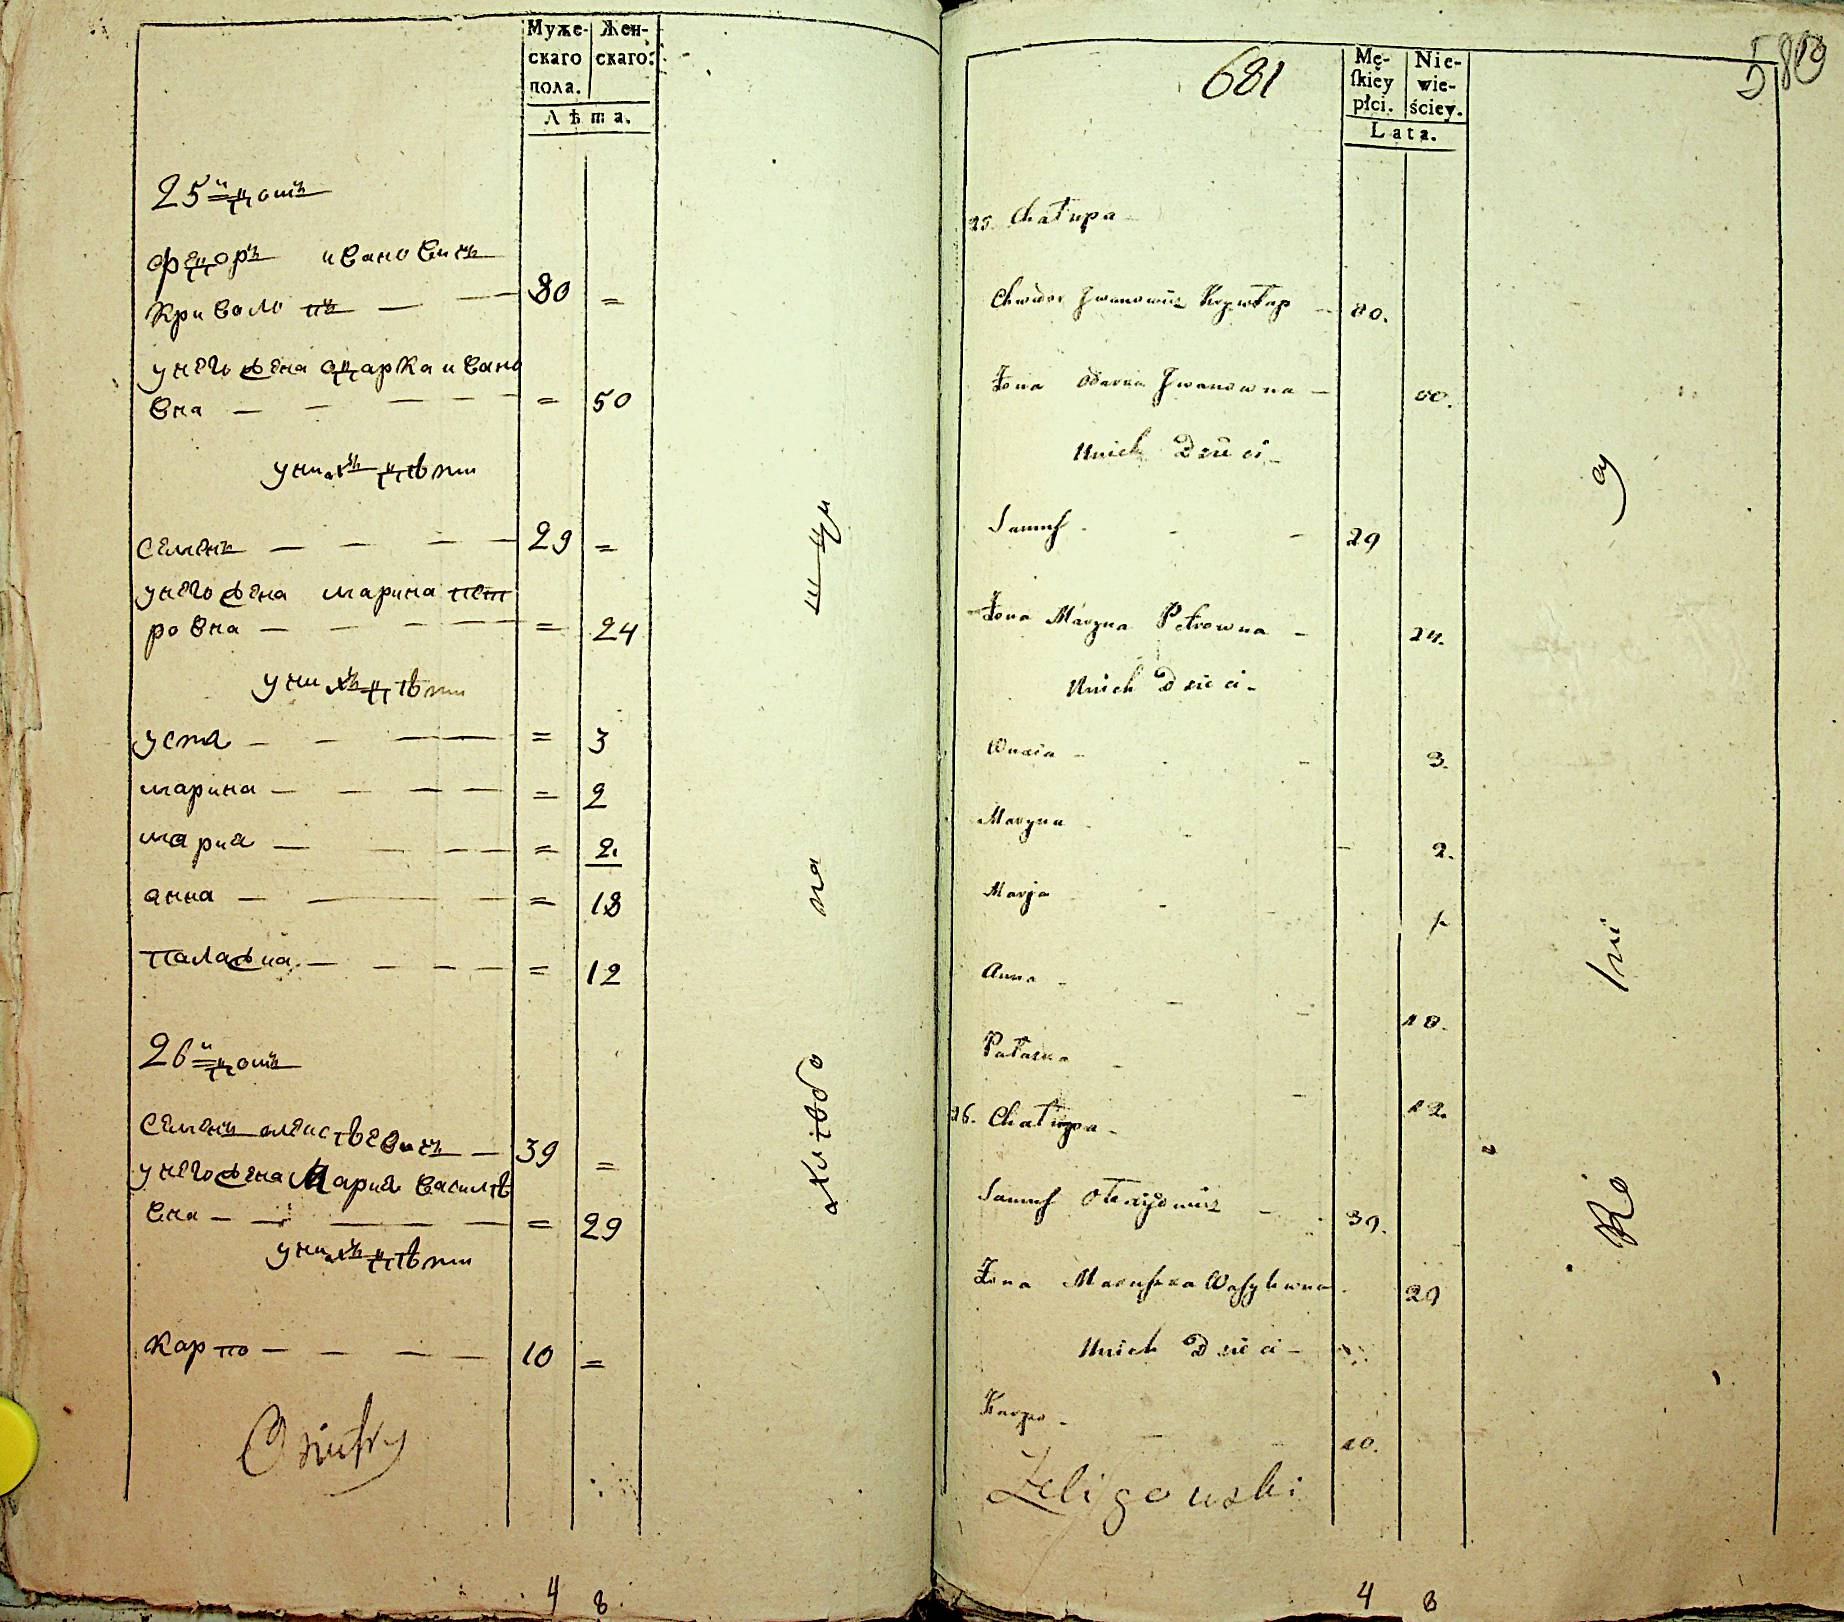 Муже- Жен-
скаго скаго.
пола.
Лѣта.
25й домъ
Федоръ Ивановичъ
Криволопъ — — 80 =
у него жена Одарка Ивано
вна — — — — = 50
у нихъ дѣти
Семенъ — — — — 29 =
у него жена Марина Пет
ровна — — — — = 24
у нихъ дѣти
Устя — — — = 3
Марина — — — — = 2
Мария — — — — = 2.
Анна — — — = 18
Палажка — — — — = 12
26й домъ
Семенъ Олексѣевичъ — 39 =
у него жена Мария Василѣ
вна — — — — = 29
у нихъ дѣти
Карпо — — — — 10 =
4 8.
681
589
Mę- Nie-
skiey wie-
płci. ściey.
Lata.
25. Chałupa —
Chwedor Jwanowicz Krzywłap — 80.
Żona Odarka Jwanowna — 50.
Unich Dzieci —
Samuś - - - 29
Żona Maryna Petrowna — 24.
Unich Dzieci -
3.
Maryna - - - 2.
Marja - -
Anna - - - 18.
Pałaszka - - 12.
26. Chałupa -
Samuś Olexijowicz - - 39.
Żona Maruszka Wasylewna 29
Unich Dzieci —
Karpo - - - 10.
Zeligowski
4 8